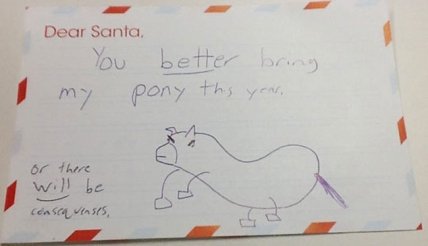 Dear Santa,
You better bring
my pony ths year,
or there
will be
consequenses,